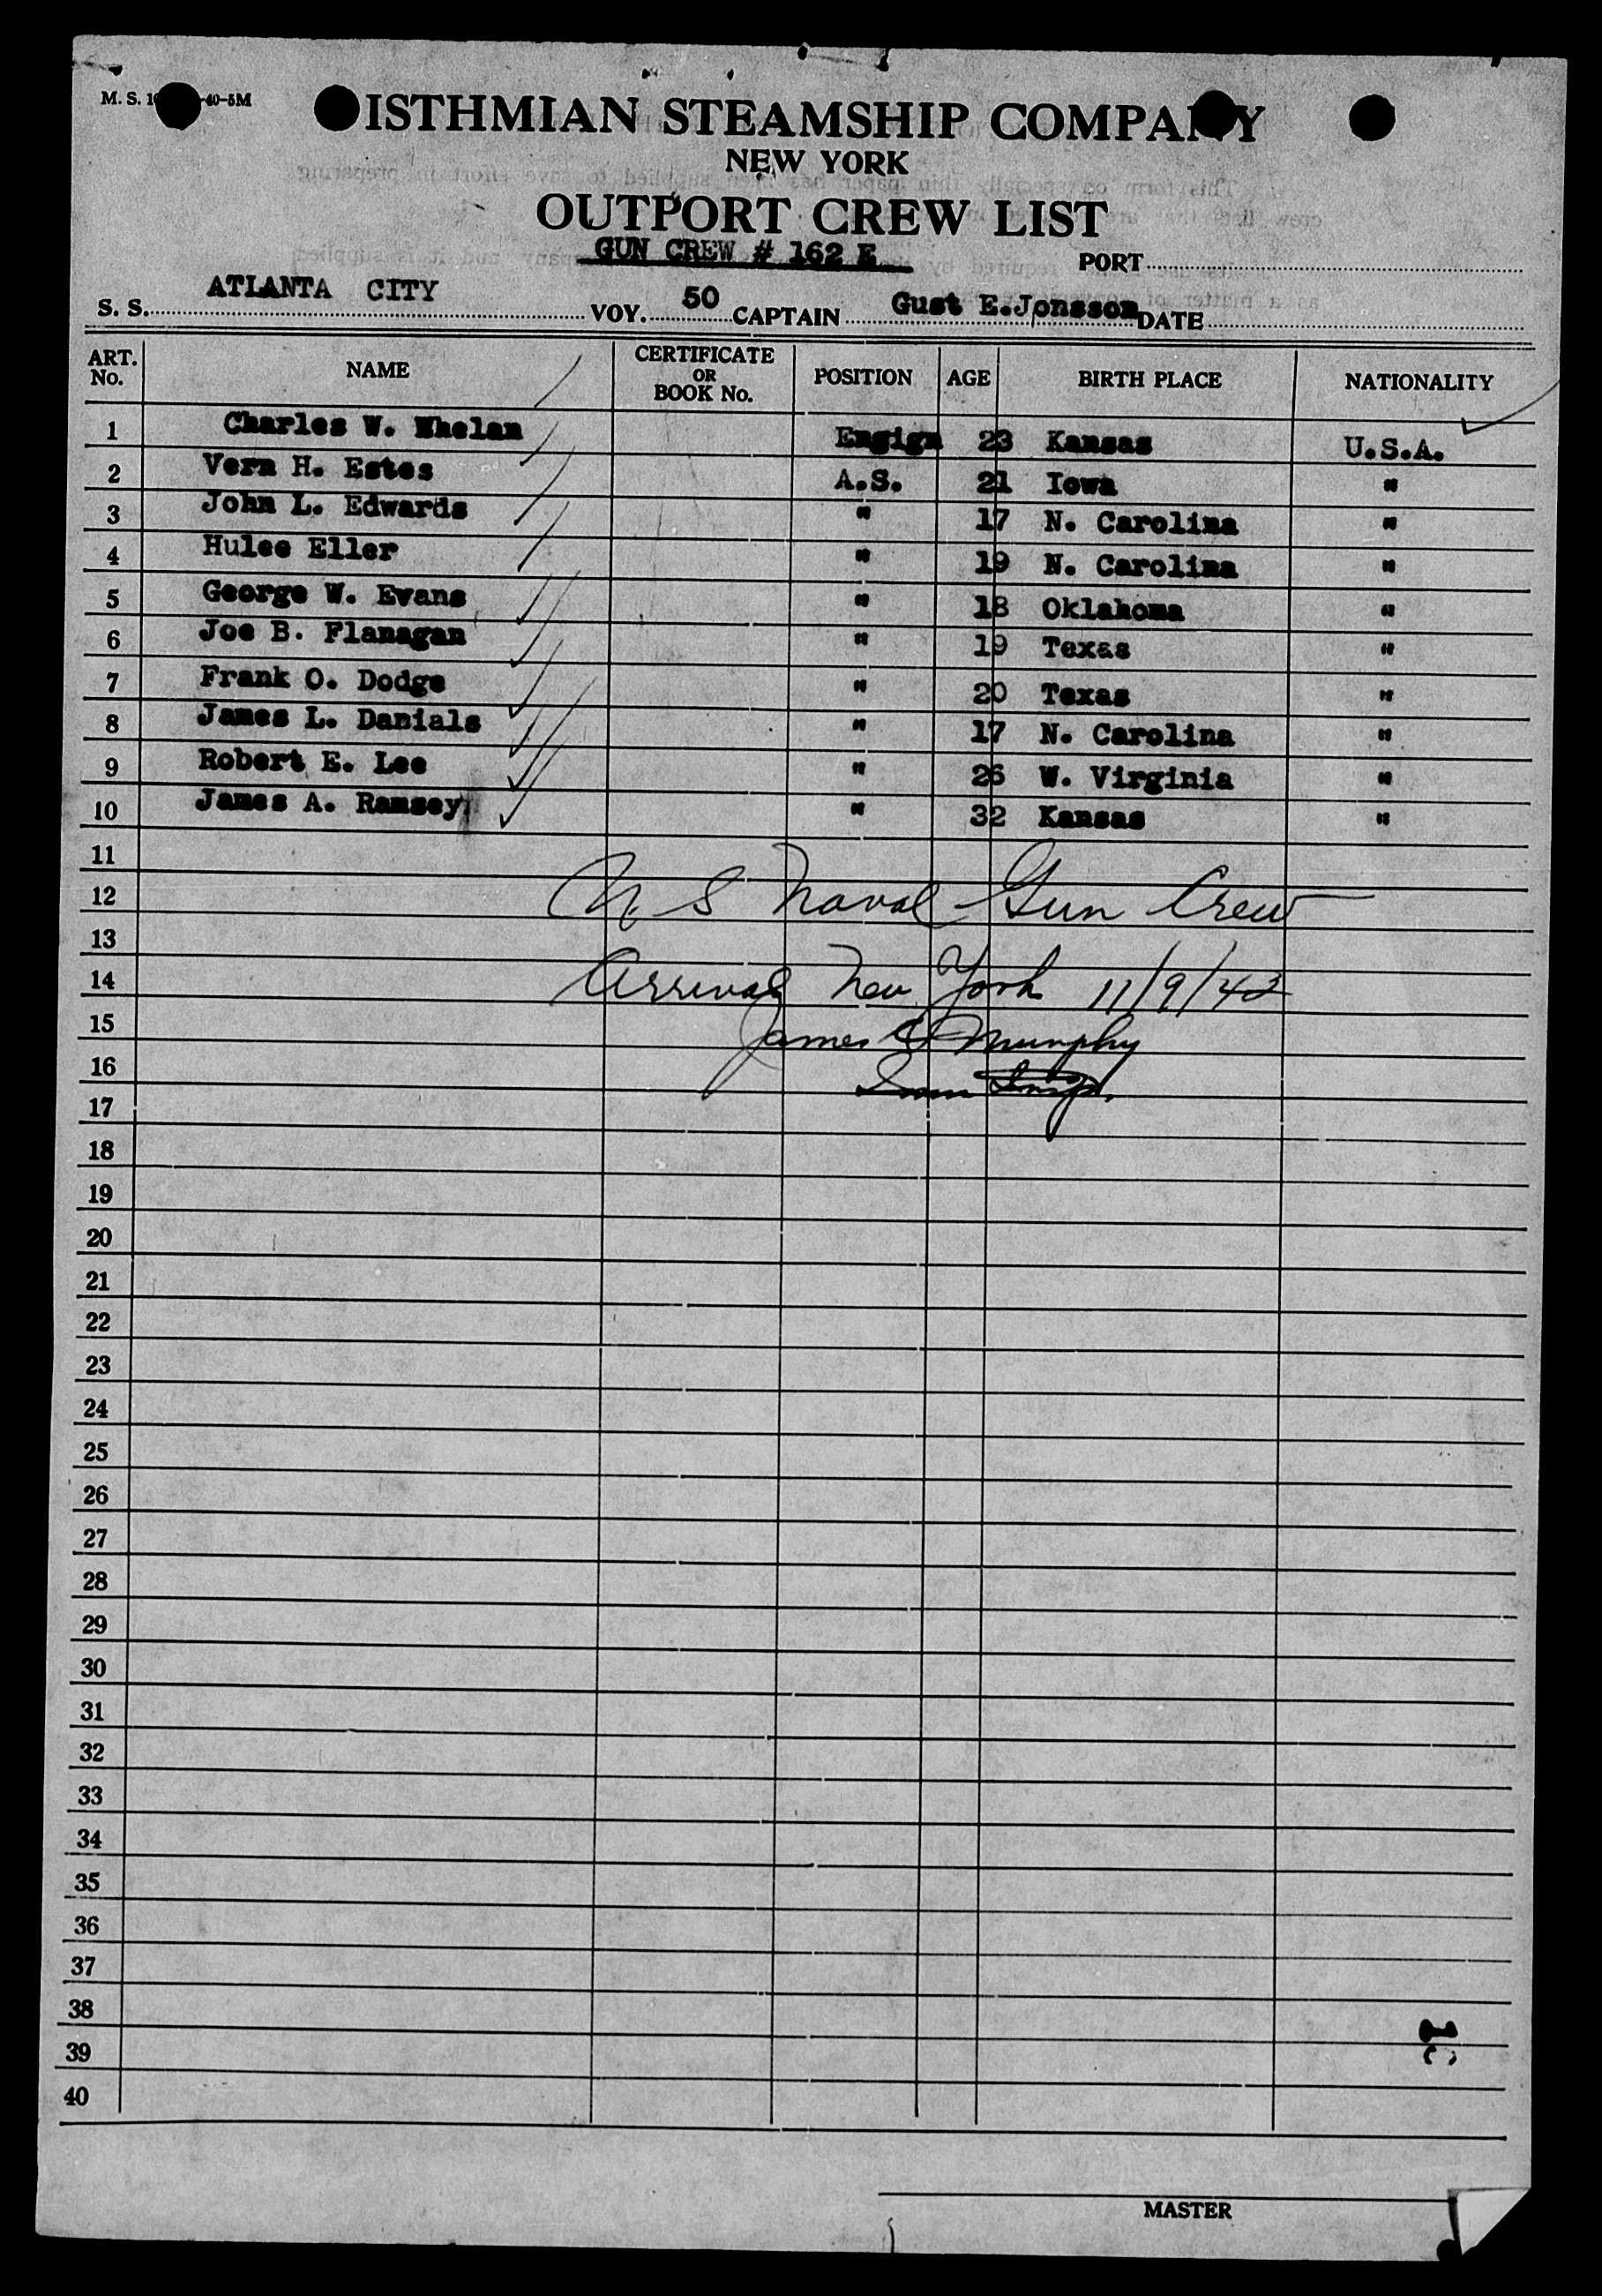 M. S. 1 -40-5M
ISTHMIAN STEAMSHIP COMPANY
NEW YORK
OUTPORT CREW LIST
GUN CREW # 162 E
PORT
S. S. ATLANTA CITY VOY. 50 CAPTAIN Gust E.Jonsson DATE
ART. No. NAME CERTIFICATE OR BOOK No. POSITION AGE BIRTH PLACE NATIONALITY
1 Charles W. Whelan Ensign 23 Kansas U.S.A.
2 Vern H. Estes A.S. 21 Iowa "
3 John L. Edwards " 17 N. Carolina "
4 Hulee Eller " 19 N. Carolina "
5 George W. Evans " 18 Oklahoma "
6 Joe B. Flanagan " 19 Texas "
7 Frank O. Dodge " 20 Texas "
8 James L. Danials " 17 N. Carolina "
9 Robert E. Lee " 26 W. Virginia "
10 James A. Ramsey " 32 Kansas "
11
12 U S Naval Gun Crew
13
14 Arrival New York 11/9/42
15 James Murphy
16
17
18
19
20
21
22
23
24
25
26
27
28
29
30
31
32
33
34
35
36
37
38
39
40
MASTER